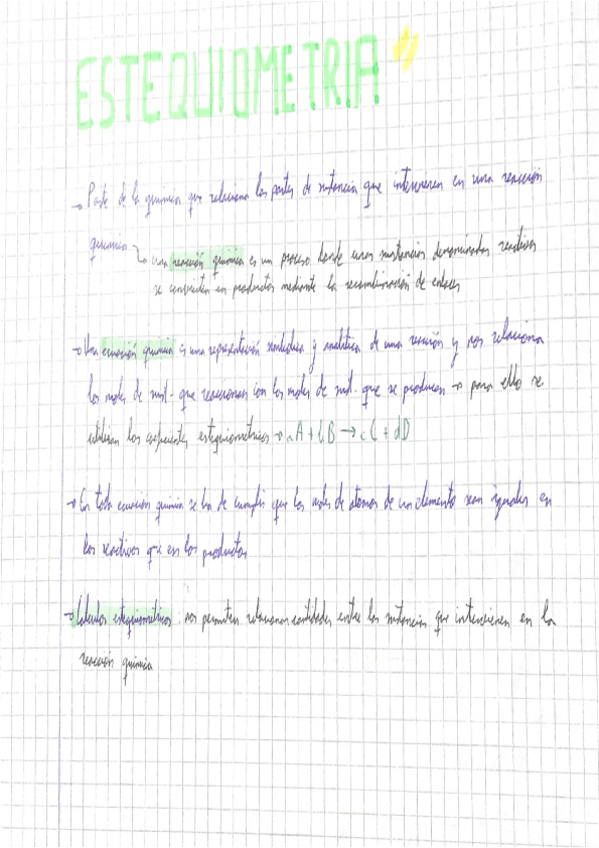 ESTEQUIOMETRIA
→ Parte de la química que relaciona las partes de sustancia que intervienen en una reacción
química ↳ una reacción química es un proceso donde unas sustancias denominadas reactivos
se convierten en productos mediante la recombinación de enlaces
→ Una ecuación química es una representación simbólica y analítica de una reacción y nos relaciona
los moles de sust. que reaccionan con los moles de sust. que se producen → para ello se
utilizan los coeficientes estequiometricos → aA + bB → cC + dD
→ En toda ecuación química se ha de cumplir que los moles de átomos de un elemento sean iguales en
los reactivos que en los productos
→ Cálculos estequiometricos: nos permiten relacionar cantidades entre las sustancias que intervienen en la
reacción química